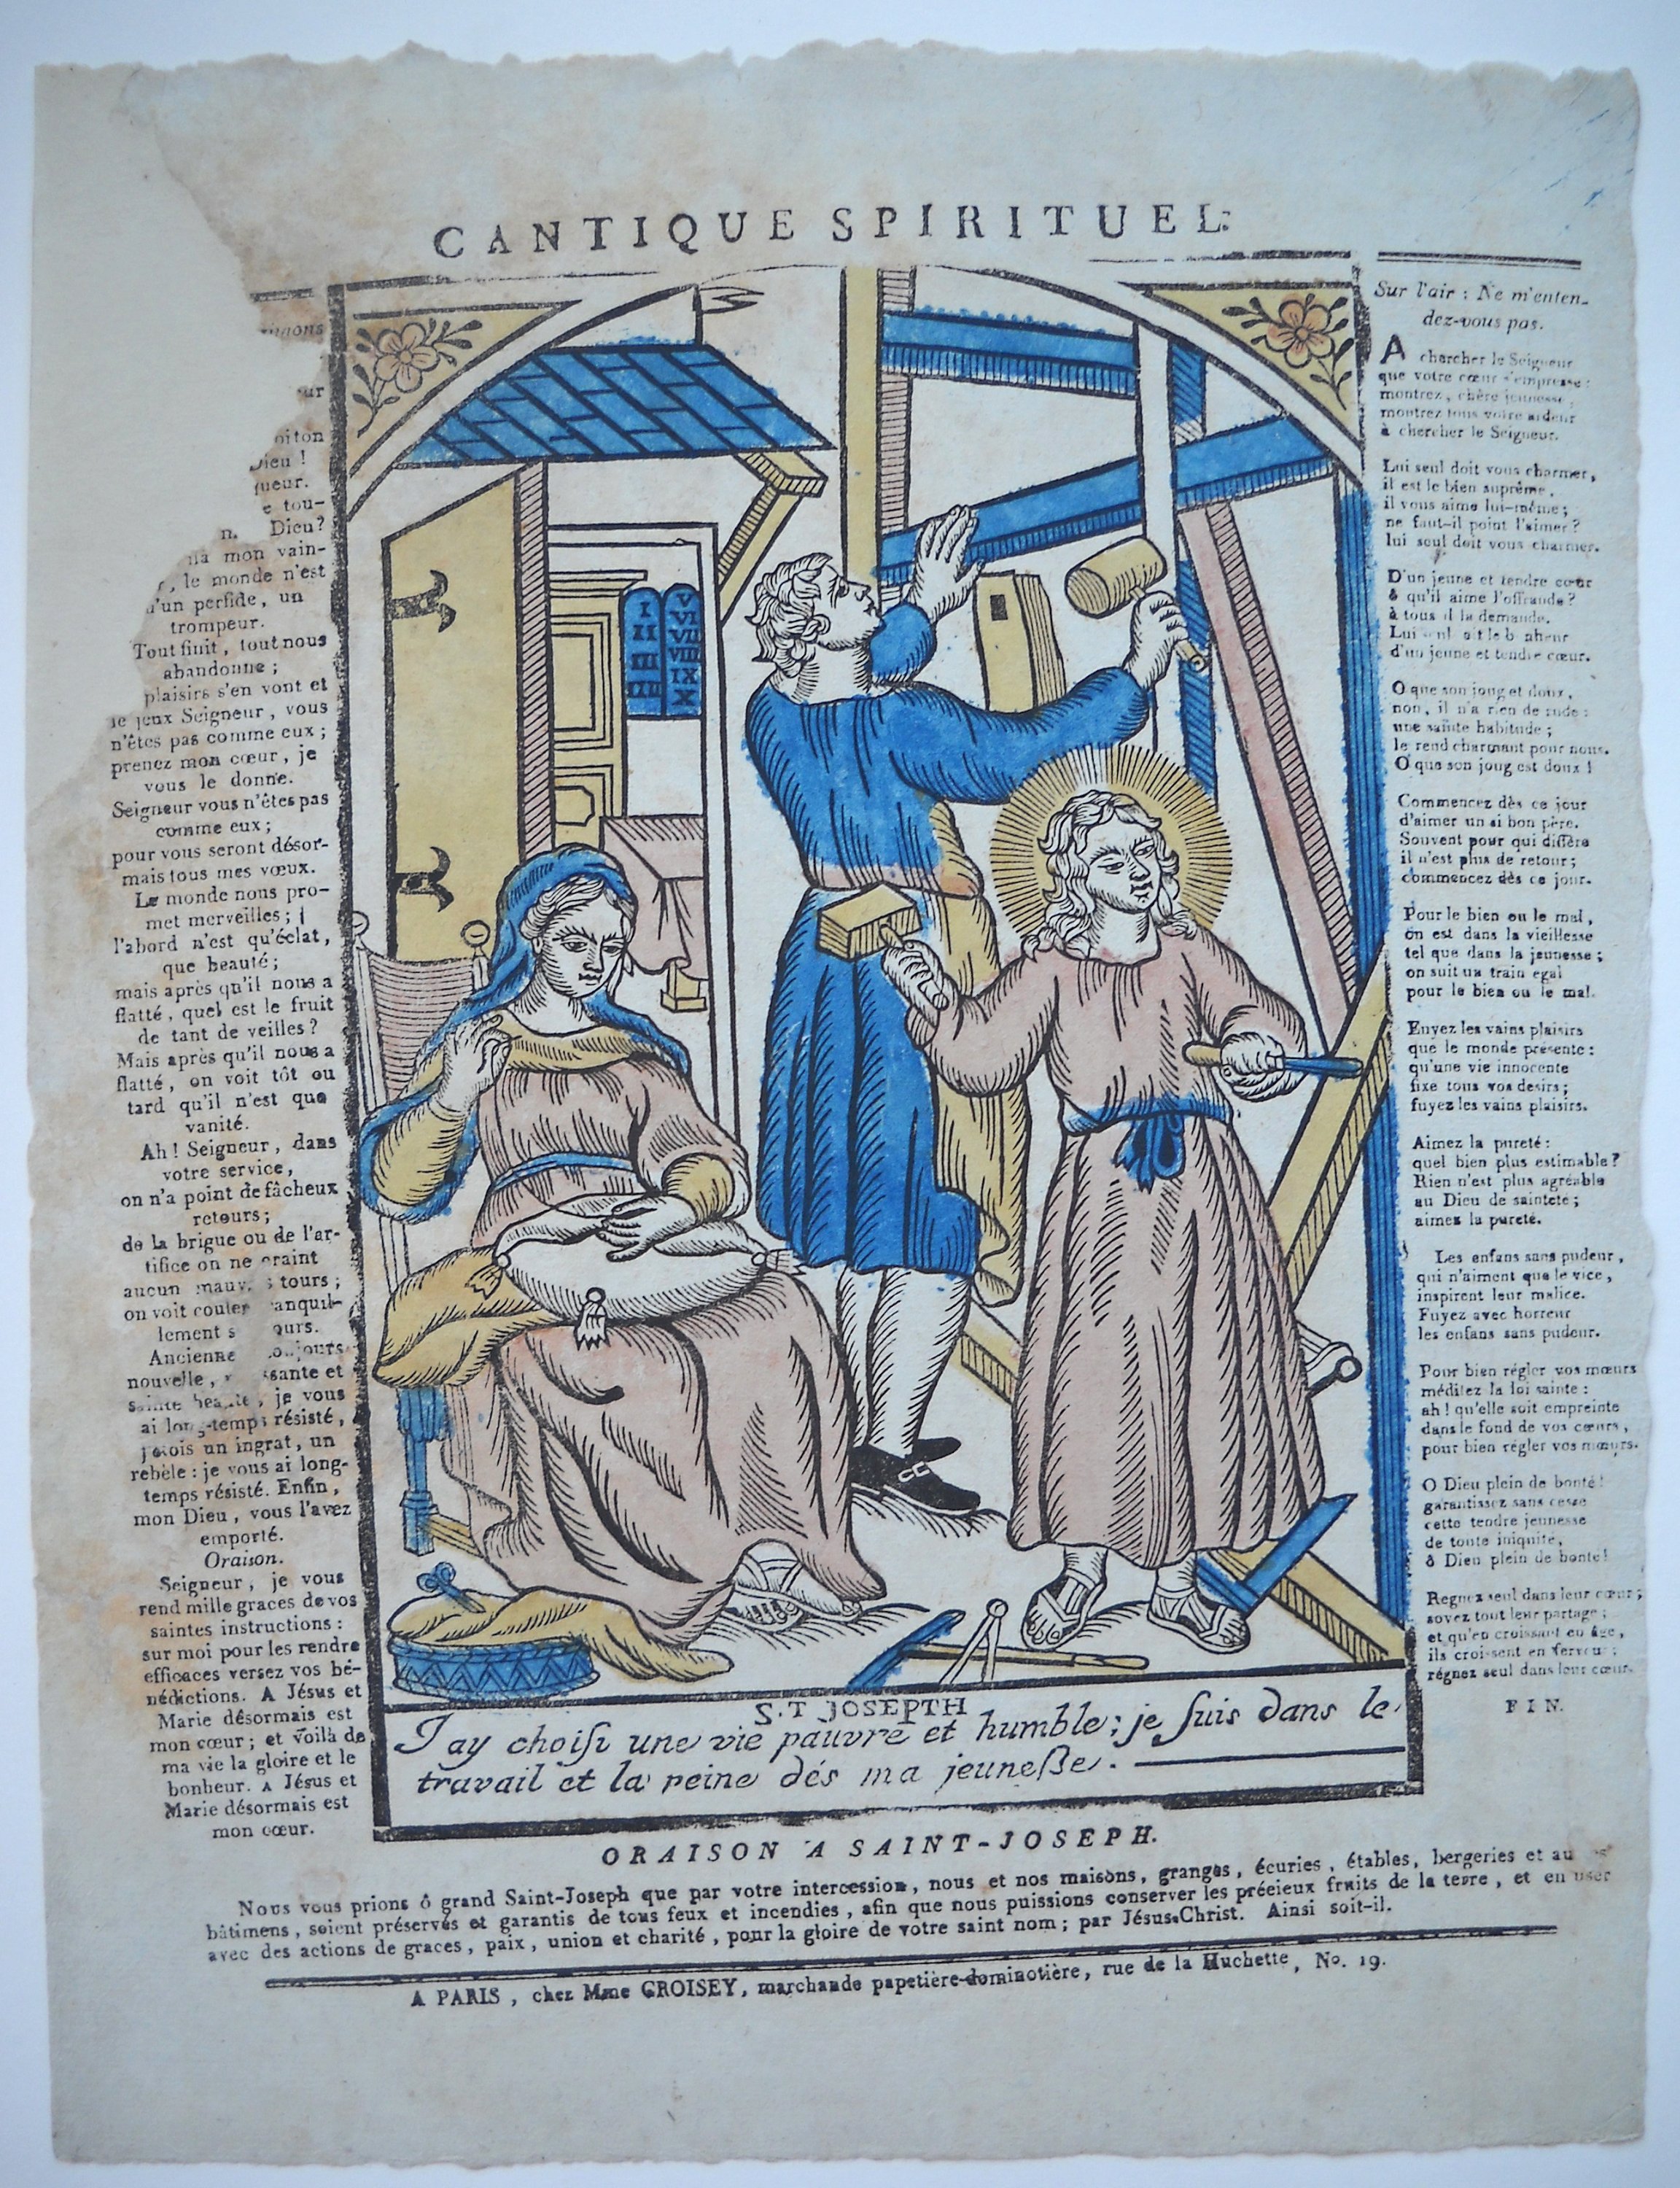 CANTIQUE SPIRITUEL.
ur
oiton
Dieu !
ueur.
e tou-
n. Dieu?
mon vain-
, le monde n'est
un perfide, un
trompeur.
Tout finit, tout nous
abandonne ;
plaisirs s'en vont et
jeux Seigneur, vous
n'êtes pas comme eux ;
prenez mon cœur, je
vous le donne.
Seigneur vous n'êtes pas
comme eux ;
pour vous seront désor-
mais tous mes vœux.
Le monde nous pro-
met merveilles ;
l'abord n'est qu'éclat,
que beauté ;
mais après qu'il nous a
flatté, quel est le fruit
de tant de veilles ?
Mais après qu'il nous a
flatté, on voit tôt ou
tard qu'il n'est que
vanité.
Ah ! Seigneur, dans
votre service,
on n'a point de fâcheux
retours ;
de la brigue ou de l'ar-
tifice on ne craint
aucun mauv s tours ;
on voit couler anquil-
lement s ours.
Ancienne toujours
nouvelle, sante et
sainte beauté, je vous
ai long-temps résisté,
j'étois un ingrat, un
rebèle : je vous ai long-
temps résisté. Enfin,
mon Dieu, vous l'avez
emporté.
Oraison.
Seigneur, je vous
rend mille graces de vos
saintes instructions :
sur moi pour les rendre
efficaces versez vos bé-
nédictions. A Jésus et
Marie désormais est
mon cœur ; et voilà de
ma vie la gloire et le
bonheur. A Jésus et
Marie désormais est
mon cœur.
I
II
III
V
VI
VII
VIII
IX
X
S.T JOSEPTH
J'ay choisi une vie pauvre et humble ; je suis dans le
travail et la peine dés ma jeunesse.
Sur l'air : Ne m'enten-
dez-vous pas.
A chercher le Seigneur
que votre cœur s'empresse :
montrez, chère jeunesse,
montrez tous votre ardeur
à chercher le Seigneur.
Lui seul doit vous charmer,
il est le bien suprême,
il vous aime lui-même ;
ne faut-il point l'aimer ?
lui seul doit vous charmer.
D'un jeune et tendre cœur
ô qu'il aime l'offrande ?
à tous il la demande.
Lui
d'un jeune et tendre cœur.
O que son joug et doux,
non, il n'a rien de rude :
une sainte habitude ;
le rend charmant pour nous.
O que son joug est doux !
Commencez dès ce jour
d'aimer un si bon père.
Souvent pour qui diffère
il n'est plus de retour ;
commencez dès ce jour.
Pour le bien ou le mal,
on est dans la vieillesse
tel que dans la jeunesse ;
on suit un train egal
pour le bien ou le mal.
Fuyez les vains plaisirs
que le monde présente :
qu'une vie innocente
fixe tous vos desirs ;
fuyez les vains plaisirs.
Aimez la pureté :
quel bien plus estimable ?
Rien n'est plus agréable
au Dieu de sainteté ;
aimez la pureté.
Les enfans sans pudeur,
qui n'aiment que le vice,
inspirent leur malice.
Fuyez avec horreur
les enfans sans pudeur.
Pour bien régler vos mœurs
méditez la loi sainte :
ah ! qu'elle soit empreinte
dans le fond de vos cœurs,
pour bien régler vos mœurs.
O Dieu plein de bonté !
garantissez sans cesse
cette tendre jeunesse
de toute iniquité,
ô Dieu plein de bonté !
Regnez seul dans leur cœur ;
soyez tout leur partage ;
et qu'en croissant en âge,
ils croissent en ferveur :
régnez seul dans leur cœur.
FIN.
ORAISON A SAINT-JOSEPH.
Nous vous prions ô grand Saint-Joseph que par votre intercession, nous et nos maisons, granges, écuries, étables, bergeries et au
bâtimens, soient préservés et garantis de tous feux et incendies, afin que nous puissions conserver les précieux fruits de la terre, et en user
avec des actions de graces, paix, union et charité, pour la gloire de votre saint nom ; par Jésus-Christ. Ainsi soit-il.
A PARIS, chez Mme CROISEY, marchande papetière-dominotière, rue de la Huchette, No. 19.